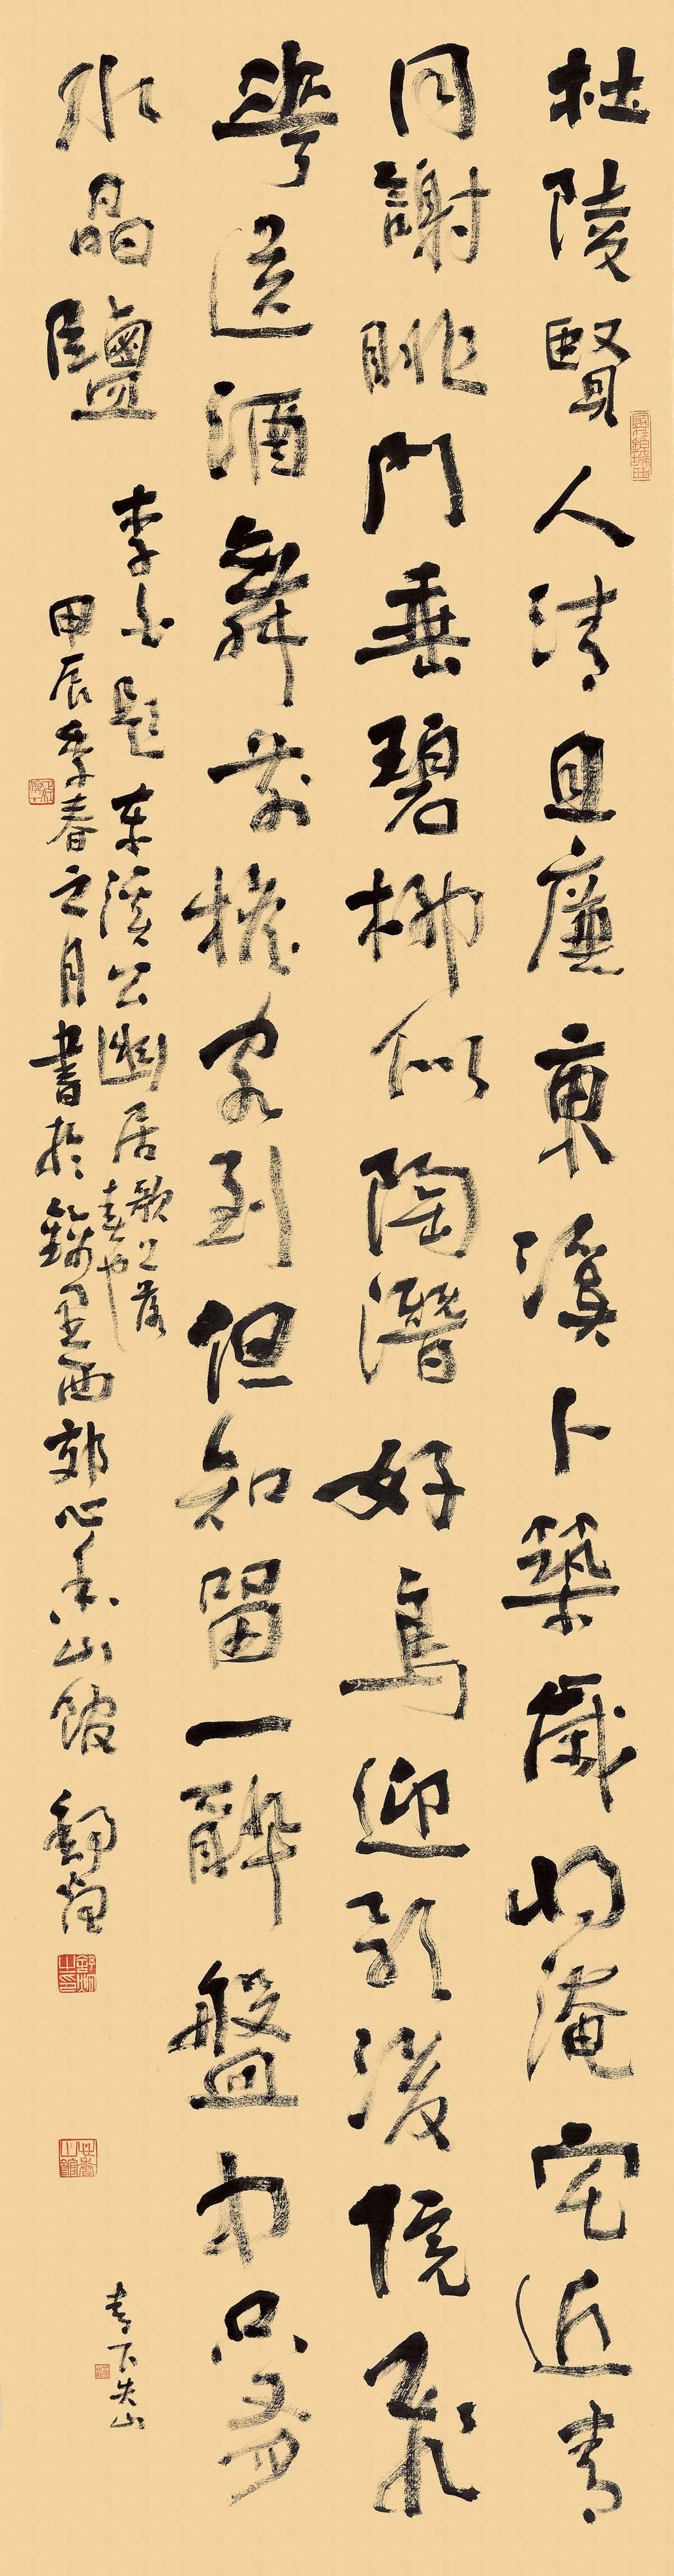 杜陵賢人清且廉東溪卜築歲將淹宅近青
同謝眺門垂碧柳似陶潛好鳥迎歌後院飛
華送酒舞前檐客到但知留一醉盤中只有
水晶鹽
李白題東溪公幽居
歌上落
春也
甲辰季春之月書於錦里西郊心香山館 舒炯
青下失山